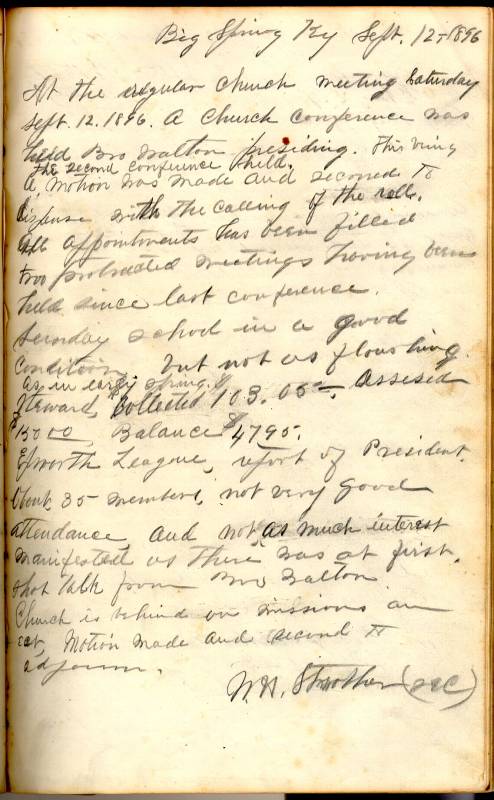 Big Spring Ky Sept. 12-1896
At the regular Church meeting Saturday
Sept. 12. 1896. A Church Conference was
held Bro presiding. This being
the second conference held.
A, Motion was made and second to
dispense with the calling of the roll.
All appointments has been filled
two protracted meetings having been
held since last conference.
Sunday school in a good
condition, but not as floushing
as in early spring.
Steward, collected $103.05. Assesed
$150.00 Balance $47.95.
Epworth League, report of President.
about 35 members, not very good
attendance and not as much interest
manifested as there was at first.
shot talk from Bro
Church is behind on missions an
ect, Motion made and second to
adjourn.
W.H. Strother (sec)